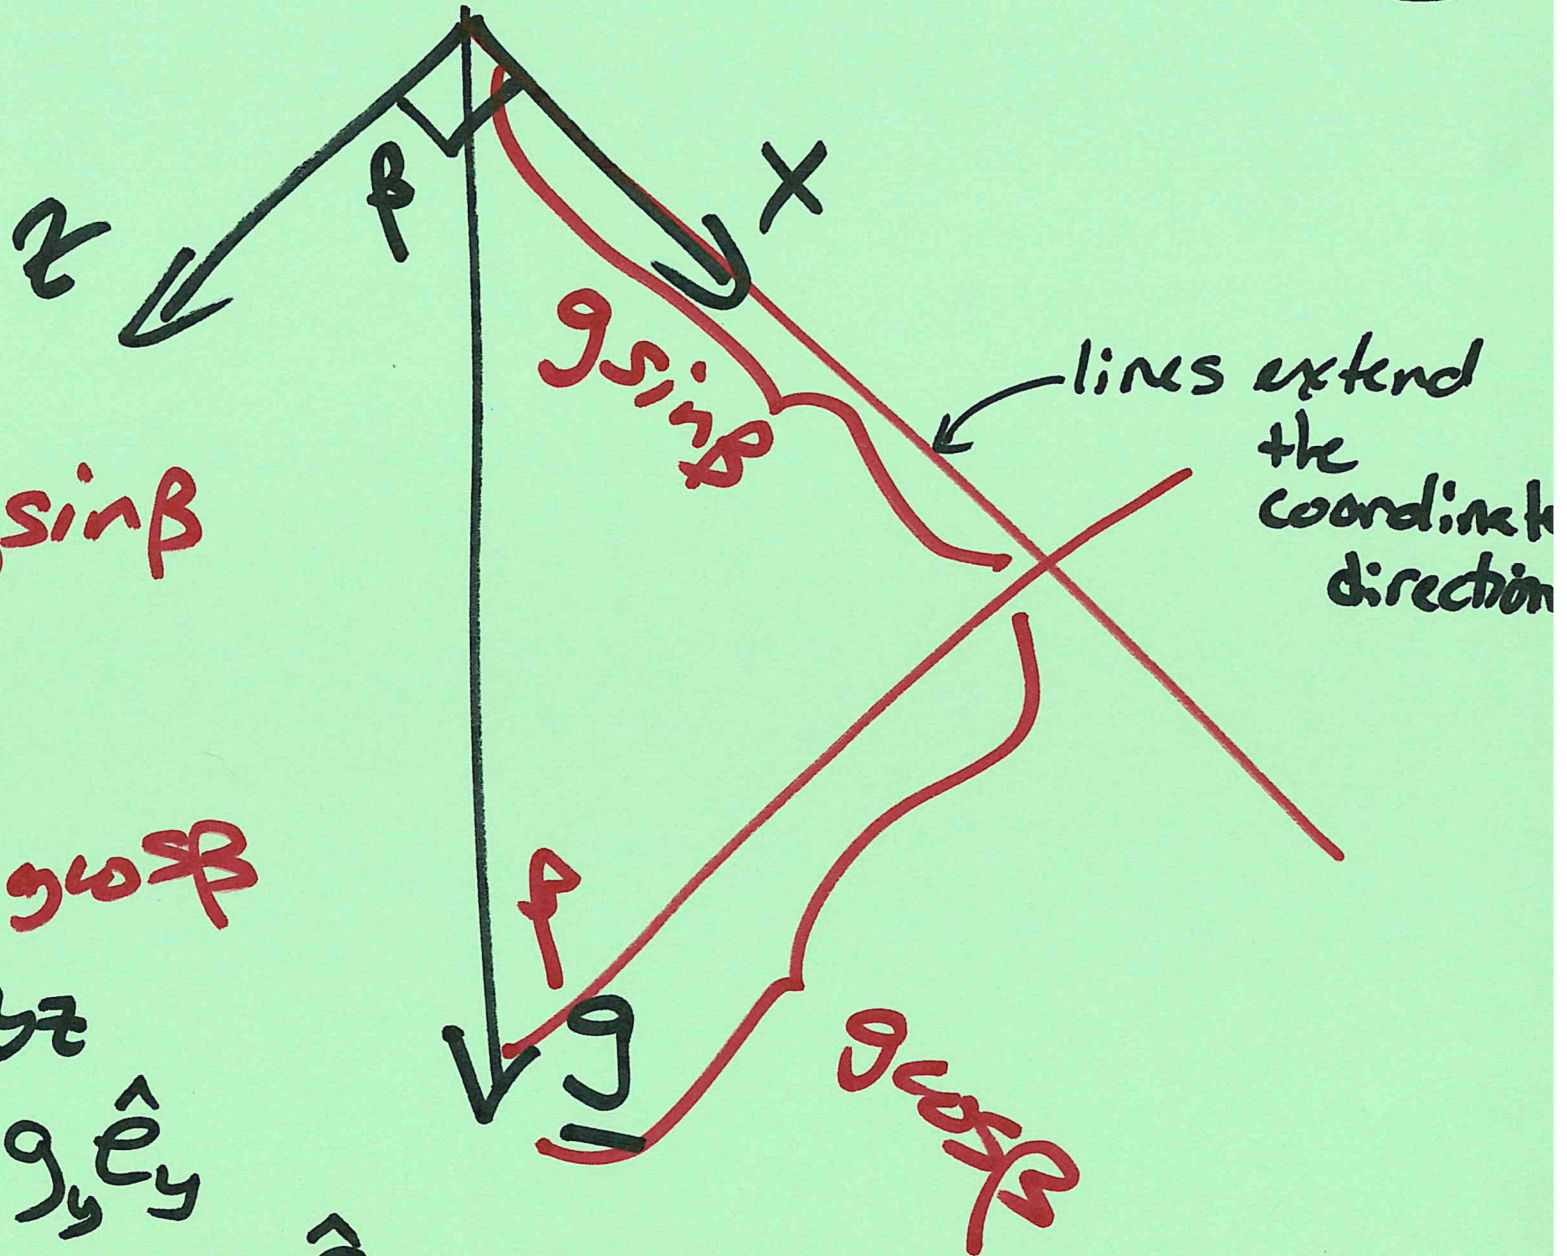 z
β
x
g sinβ
lines extend
the
coordinate
direction
sinβ
β
g cosβ
g
g cosβ
g_y ê_y